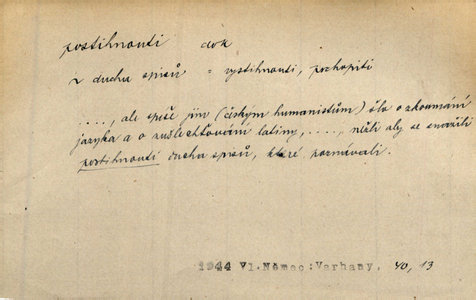 postihnouti dok
~ ducha spisů = vystihnouti, pochopiti
...., ale spíše jim (českým humanistům) šlo o zkoumání
jazyka a o zušlechťování latiny, ...., nežli aby se snažili
postihnouti ducha spisů, které poznávali.
1944 Vl.Němec:Varhany, 40, 13